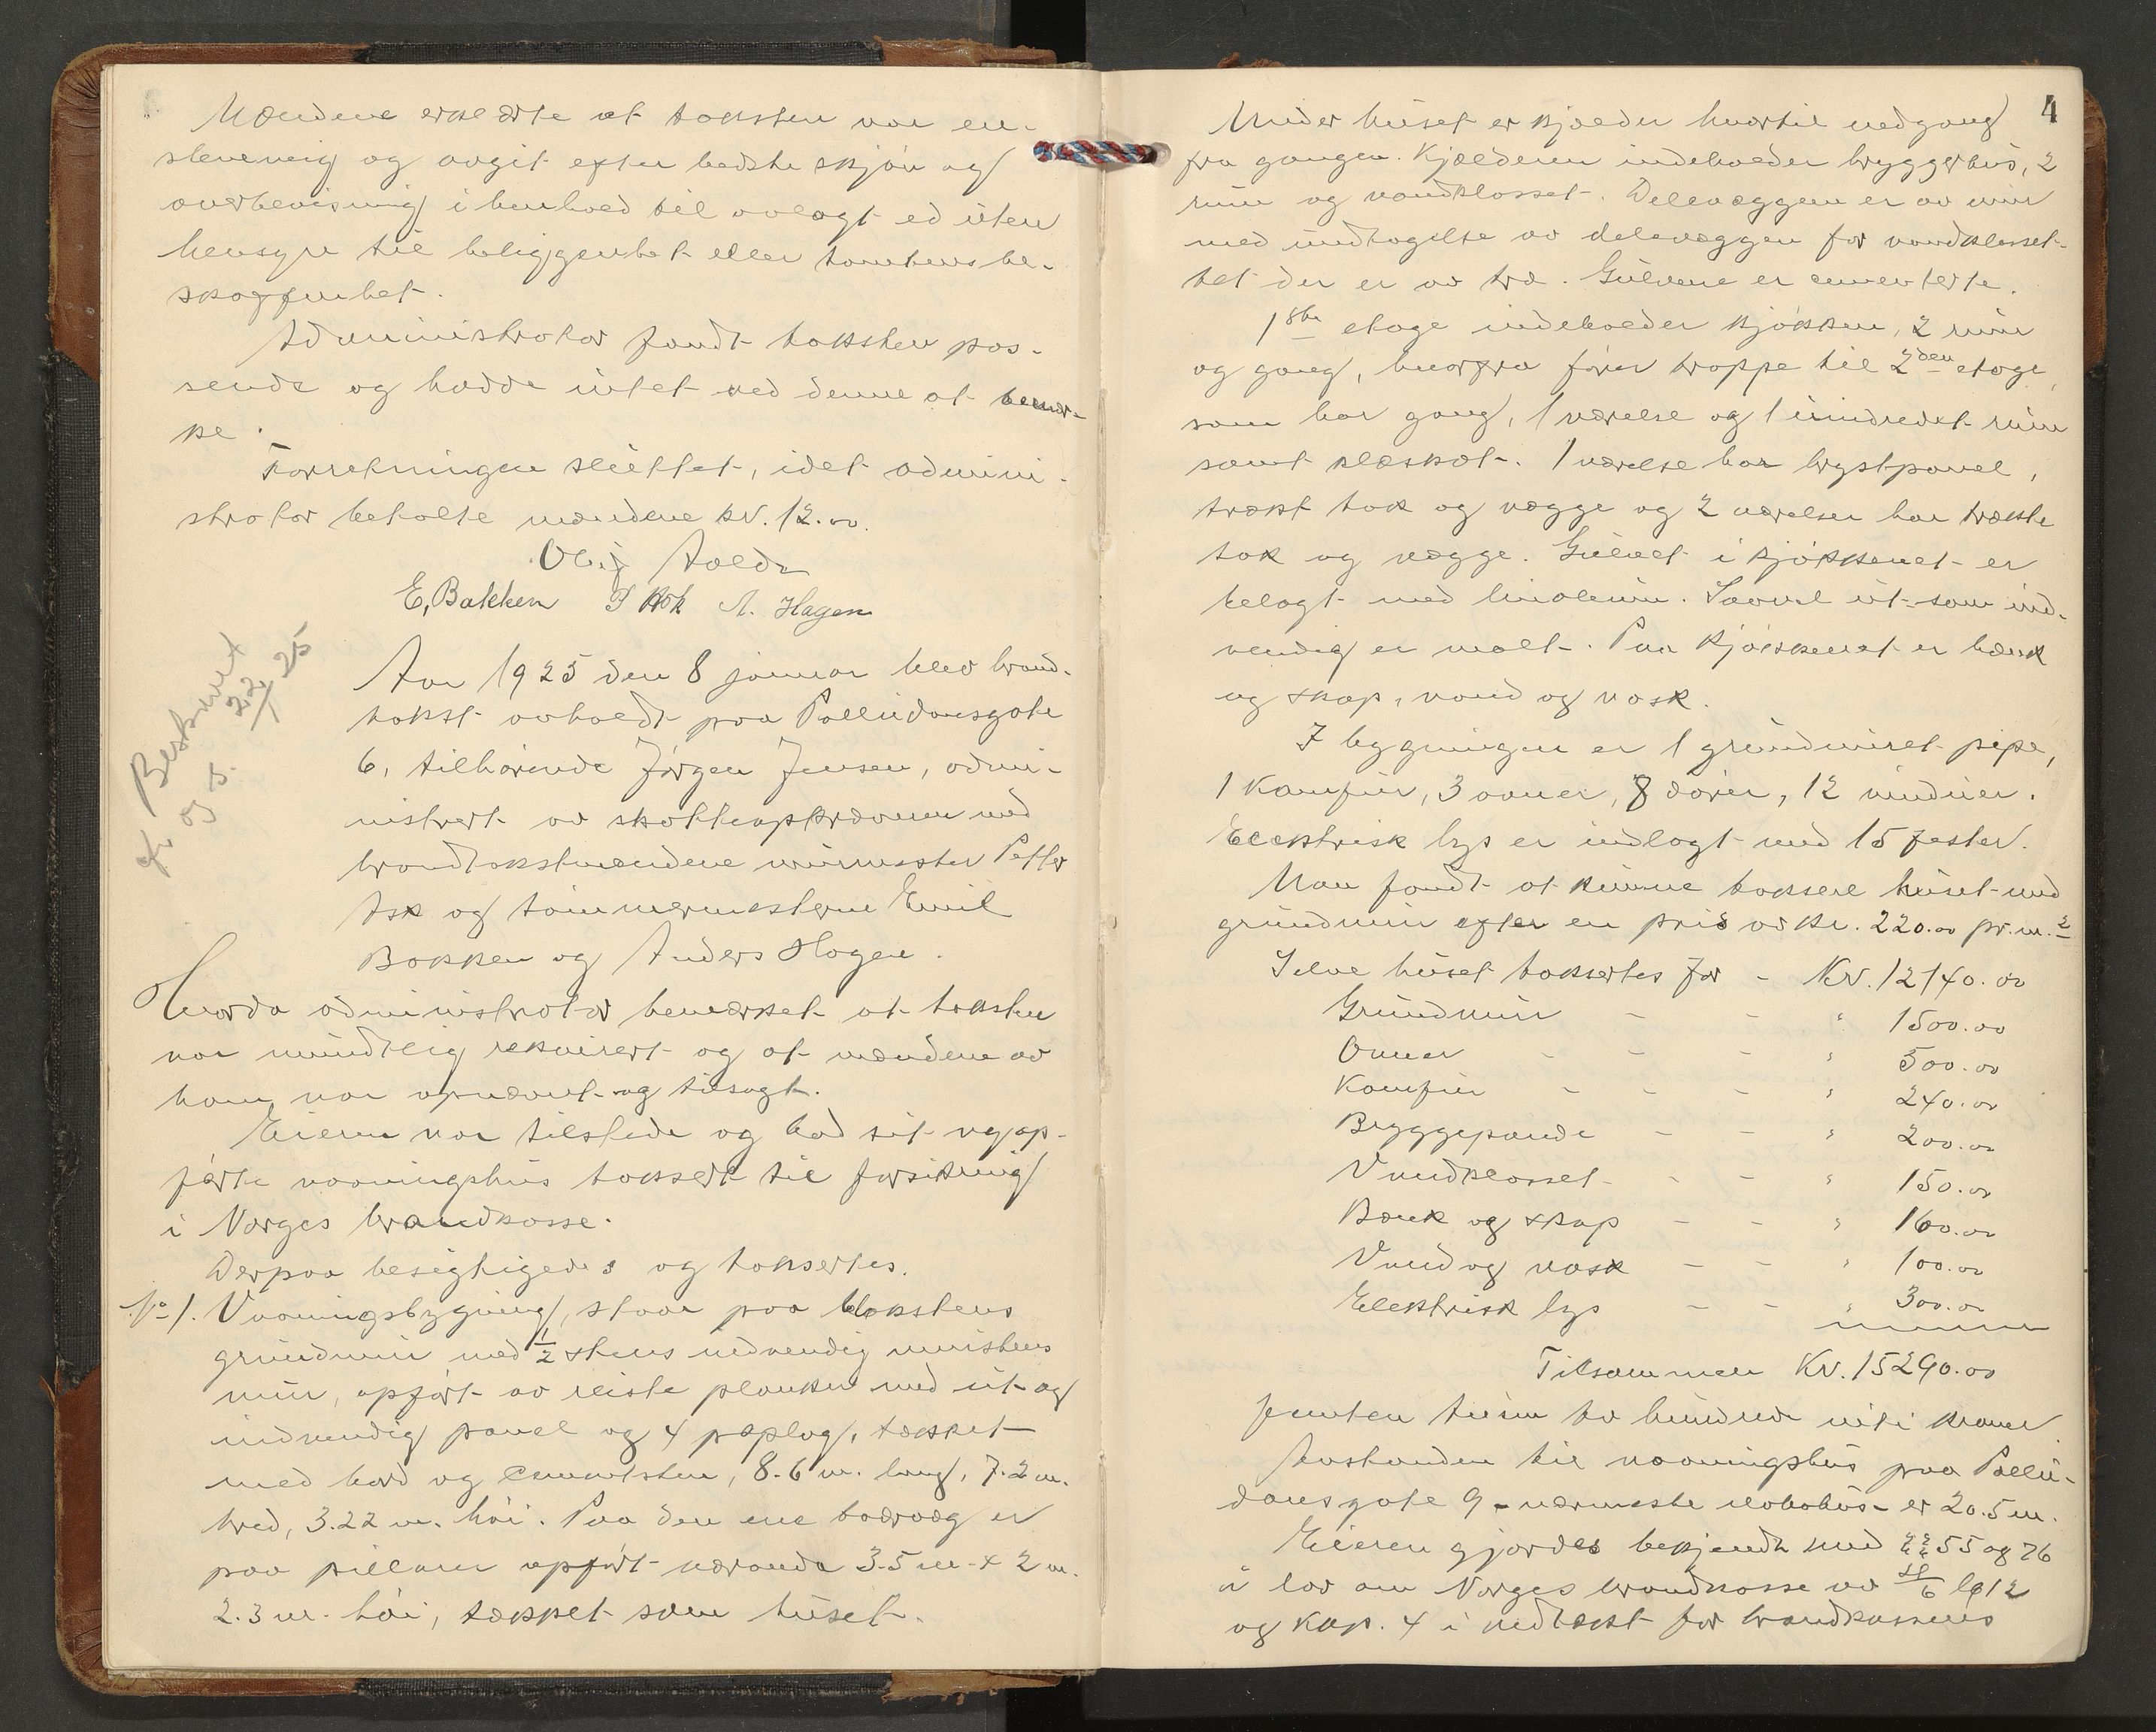 Mændene erklærte at taksten var en-
stemmig og avgit efter bedste skjøn og
overbevisning i henhold til avlagt ed uten
hensyn til beliggenhet eller tomtens be-
skaffenhet.
Administrator fandt taksten pas-
sende og hadde intet ved denne at bemær-
ke.
Forretningen sluttet, idet admini-
strator betalte mændene kr. 12.00.
Oluf Aalde
E, Bakken P Ask A. Hagen
Aar 1925 den 8 januar blev brand-
takst avholdt paa Palludansgate
6, tilhørende Jørgen Jensen, admi-
nistrert av skatteopkræveren med
brandtakstmændene murmester Petter
Ask og tømmermesterne Emil
Bakken og Anders Hagen.
Beskrevet
22/1 25
f. og s.
Hvorda administrator bemærket at taksten
var mundtlig rekvirert og at mændene av
ham var opnævnt og tilsagt.
Eieren var tilstede og bad sit nyop-
førte vaaningshus taksert til forsikring
i Norges brandkasse.
Derpaa besigtigedes og taksertes.
No 1. Vaaningsbygning, staar paa blokstens
grundmur med 1/2 stens indvendig murstens
mur, opført av reiste planker med ut- og
indvendig panel og 4 paplag, tækket
med bord og cementsten, 8.6 m. lang, 7.2 m.
bred, 3.22 m. høi. Paa den ene tværvæg er
paa pillarer opført veranda 3.5 m. x 2 m.
2.3 m. høi, tækket som huset.
4
Under huset er kjælder hvortil nedgang
fra gangen. Kjælderen indeholder bryggerhus, 2
rum og vandklosset. Delevæggen er av mur
med undtagelse av delevæggen for vandklosset-
tet der er av træ. Gulvene er cementerte.
1ste etage indeholder kjøkken, 2 rum
og gang, hvorfra fører trappe til 2den etage,
som har gang, 1 værelse og 1 uindredet rum
samt klæskot. 1 værelse har brystpanel,
trækt tak og vægge og 2 værelser har trækte
tak og vægge. Gulvet i kjøkkenet er
belagt med linoleum. Saavel ut- som ind-
vendig er malt. Paa kjøkkenet er bænk
og skap, vand og vask.
I bygningen er 1 grundmuret pipe,
1 komfur, 3 ovner, 8 dører, 12 vinduer.
Elektrisk lys er indlagt med 15 fester.
Man fandt at kunne taksere huset med
grundmur efter en pris av kr. 220.00 pr. m.2
Selve huset taksertes for - Kr. 12140.00
Grundmur - - " 1500.00
Ovner - - - " 500.00
Komfur - - - " 240.00
Bryggepande - - " 200.00
Vandklosset - - " 150.00
Bænk og skap - - " 160.00
Vand og vask - - " 100.00
Elektrisk lys - - " 300.00
Tilsammen Kr. 15290.00
femten tusen to hundrede niti kroner.
Avstanden til vaaningshus paa Pallu-
dansgate 9 - nærmeste nabohus - er 20.5 m.
Eieren gjordes bekjendt med §§ 55 og 76
i lov om Norges brandkasse av 1912
og kap. 4 i indtækst for brandkassens